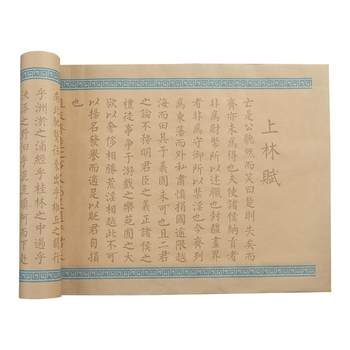 上林賦
亡是公听然而笑曰楚則失矣而
齊亦未為得也夫使諸侯納貢者
非為財幣所以述職也封疆畫界
者非為守御所以禁淫也今齊列
為東藩而外私肅慎捐國逾限越
海而田其于義固未可也且二君
之論不務明君臣之義正諸侯之
禮徒事爭于游戲之樂苑囿之大
欲以奢侈相勝荒淫相越此不可
以揚名發譽而適足以貶君自損
往來出乎椒丘之闕行
乎洲淤之浦經乎桂林之中過乎
泱漭之野汩乎混流順阿而下赴